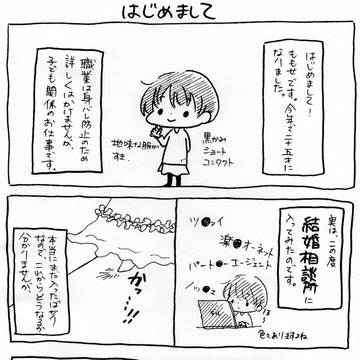 はじめまして
はじめまして！
ももせです。今年で二十五才に
なりました。
黒かみ
ショート
コンタクト
地味な服が
すき
職業は身バレ防止のため
詳しくはかけませんが、
子ども関係のお仕事です。
実は、この度
結婚相談所に
入ってみたのです。
ツ●ァイ
楽●オーネット
パート●ーエージェント
ノッ●ェ
色々ありますよね
かっ…!!
本当にまだ入ったばかり
なので、これからどうなるか
分かりませんが